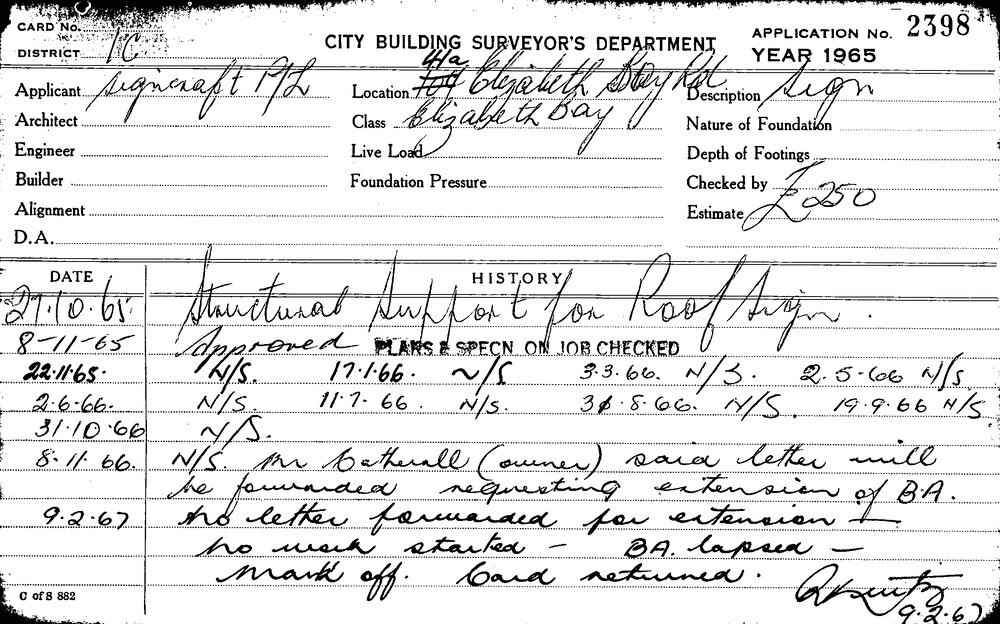 CARD No.
DISTRICT 1C
CITY BUILDING SURVEYOR'S DEPARTMENT
APPLICATION No. 2398
YEAR 1965
Applicant Signcraft P/L
Location 41a Elizabeth Bay Rd
Description Sign
Architect
Class Elizabeth Bay
Nature of Foundation
Engineer
Live Load
Depth of Footings
Builder
Foundation Pressure
Checked by
Alignment
Estimate £250
D.A.
DATE HISTORY
27.10.65 Structural Support for Roof Sign.
8-11-65 Approved PLANS & SPECN ON JOB CHECKED
22.11.65. N/S. 17.1.66. N/S 3.3.66. N/S. 2.5-66 N/S
2.6.66. N/S. 11.7.66. N/S. 31.8.66. N/S. 19.9.66 N/S.
31.10.66 N/S.
8.11.66. N/S. Mr Catherall (owner) said letter will
be forwarded requesting extension of B.A.
9.2.67 No letter forwarded for extension —
no work started – BA. lapsed –
Mark off. Card returned.
9.2.67
C of S 882